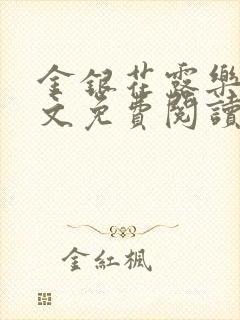 金銀花露樂
文免費閱讀
金紅楓